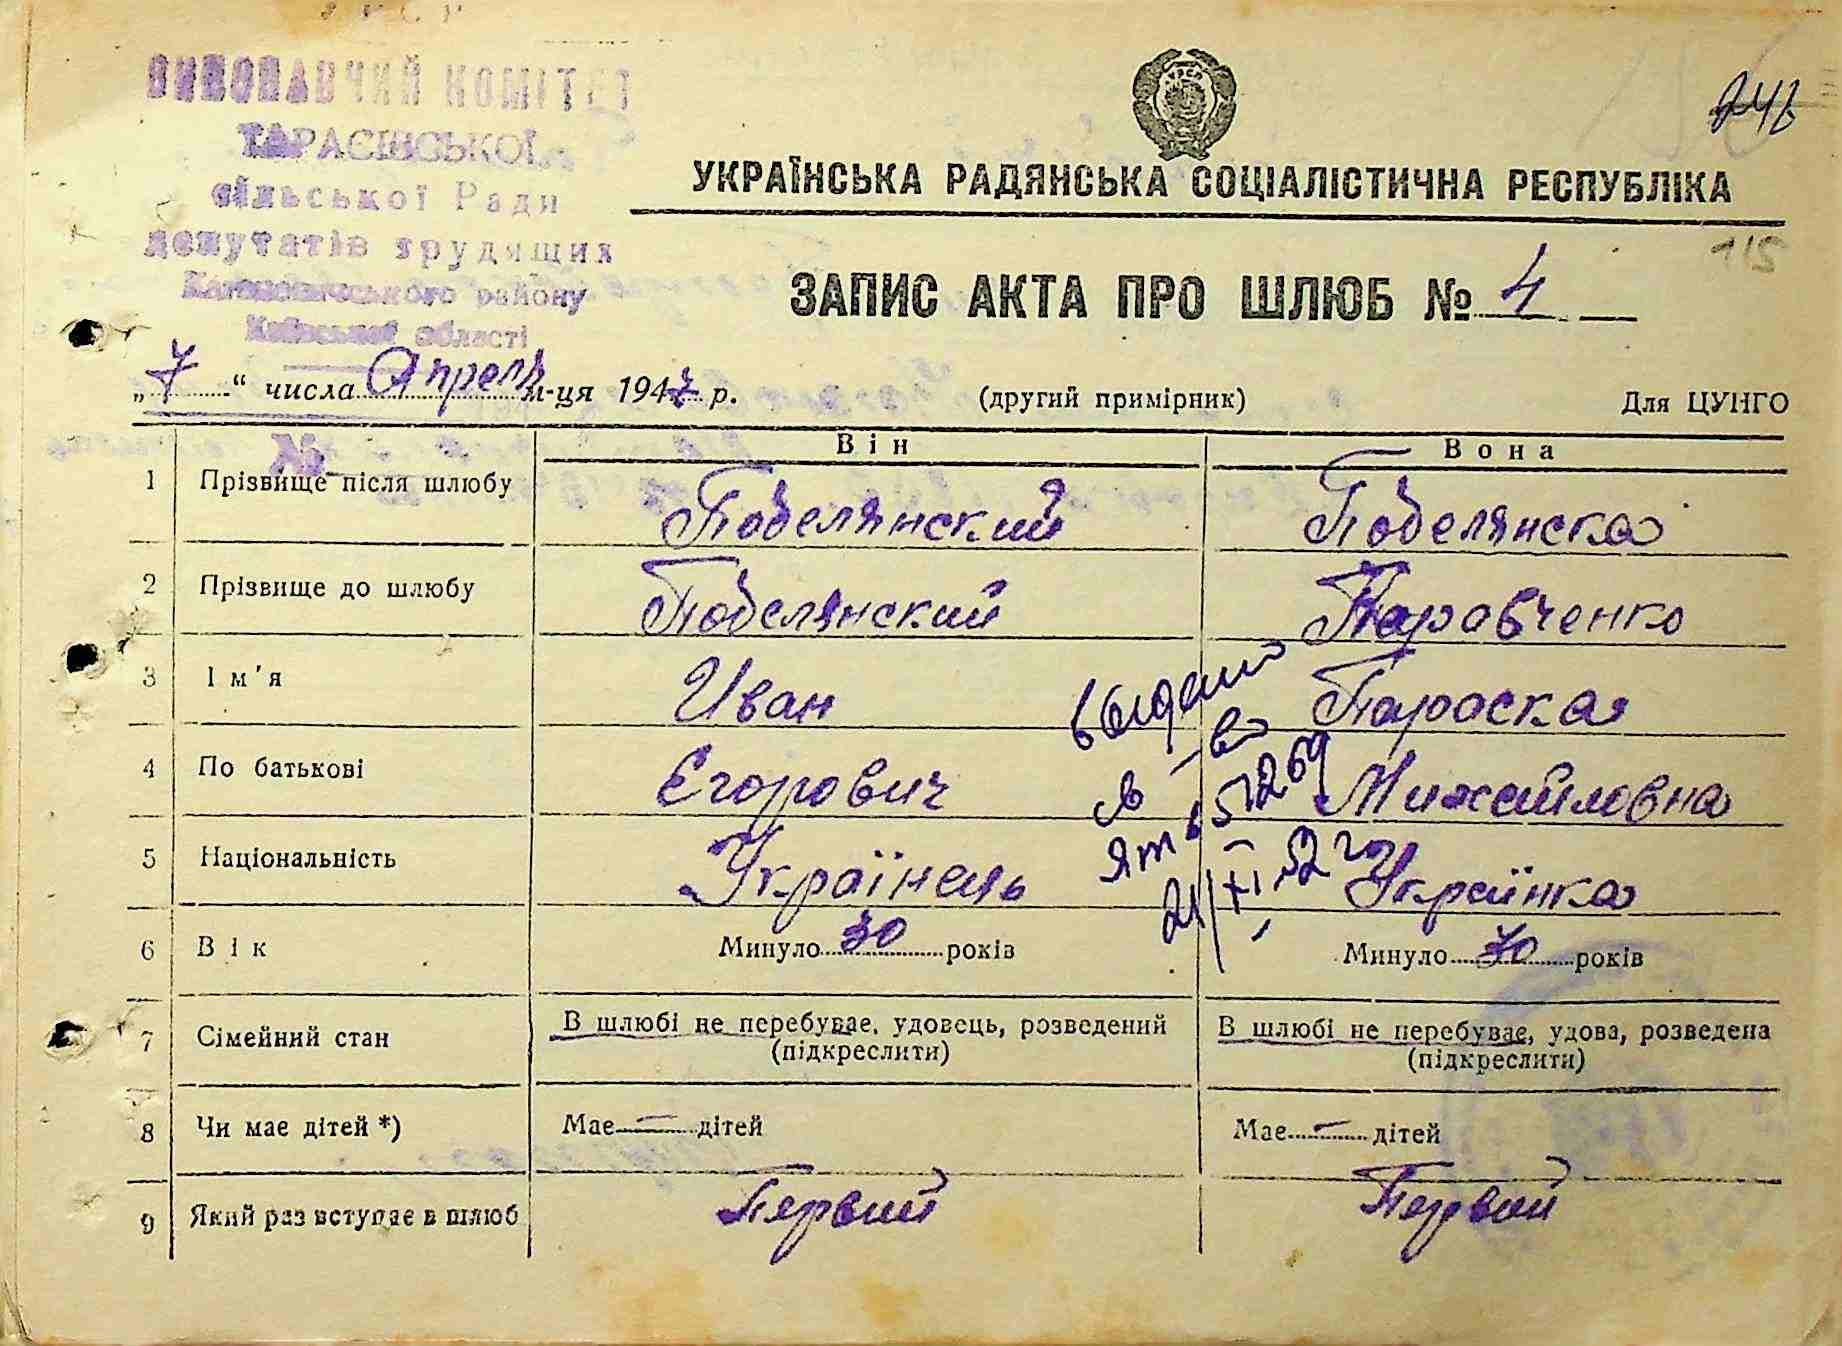 ВИКОНАВЧИЙ КОМІТЕТ
ТАРАСІВСЬКОЇ
сільської Ради
депутатів трудящих
району
Київської області
УРСР
246
УКРАЇНСЬКА РАДЯНСЬКА СОЦІАЛІСТИЧНА РЕСПУБЛІКА
115
ЗАПИС АКТА ПРО ШЛЮБ № 4
„7“ числа Апреля м-ця 1947 р. (другий примірник) Для ЦУНГО
№
Він Вона
1 Прізвище після шлюбу Побелянский Побелянска
2 Прізвище до шлюбу Побелянский Паравченко
3 Ім'я Иван Параска
4 По батькові Єгорович Михайловна
5 Національність Українець Українка
выдано
св-во
21/XI.52 г.
6 Вік Минуло 30 років Минуло 30 років
7 Сімейний стан В шлюбі не перебуває, удовець, розведений В шлюбі не перебуває, удова, розведена
(підкреслити) (підкреслити)
8 Чи має дітей *) Має — дітей Має — дітей
9 Який раз вступає в шлюб Первий Первой